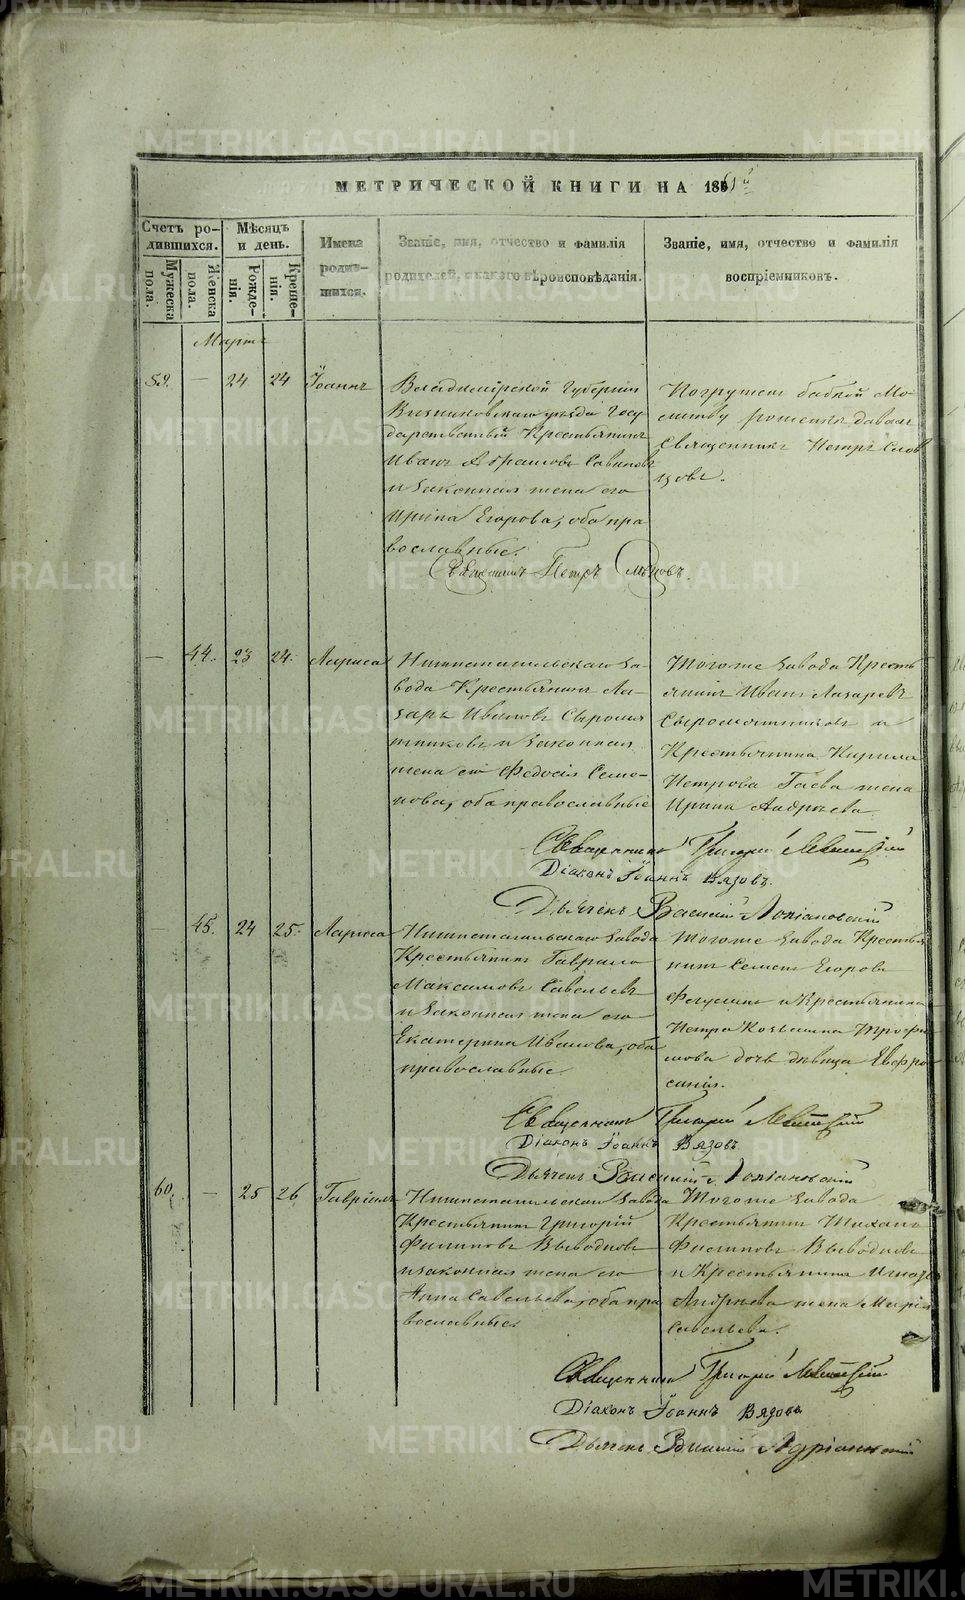 МЕТРИЧЕСКОЙ КНИГИ НА 1861й
Счетъ ро-
дившихся.
Мужеска
пола.
Женска
пола.
Мѣсяцъ
и день.
Рожде-
нія.
Креще-
нія.
Имена
родив-
шихся.
Званіе, имя, отчество и фамилія
родителей, и какого вѣроисповѣданія.
Званіе, имя, отчество и фамилія
воспріемниковъ.
Мартъ
59. — 24 24 Іоаннъ
Владимірской Губерніи
Вязниковскаго уѣзда Госу
дарственный Крестьянинъ
Иванъ Абрамовъ Савиновъ
и законная жена его
Ирина Егорова, оба пра
вославные.
Погруженъ бабкой Мо-
литву роженкѣ давалъ
Священникъ Петръ Слов
цовъ.
Священникъ Петръ Словцовъ.
— 44. 23 24. Лариса
Нижнетагильскаго За-
вода Крестьянинъ Ла-
зарь Ивановъ Сыромят
никовъ и законная
жена его Федосія Семе-
нова, оба православные
Тогоже Завода Кресть
янинъ Иванъ Лазаревъ
Сыромятниковъ и
Крестьянина Кирила
Петрова Гаева жена
Ирина Андрѣева
Священникъ Григорій Левитскій
Діаконъ Іоаннъ Вязовъ.
Дьячекъ Василій
45. 24 25. Лариса
Нижнетагильскаго Завода
Крестьянинъ Гаврило
Максимовъ Савельевъ
и законная жена его
Екатерина Иванова, оба
православные.
Тогоже Завода Крестья
нинъ Семенъ Егоровъ
и Крестьянина
Петра Козьмина Трофи
мова дочь дѣвица Евфро
синія.
Священникъ Григорій Левитскій
Діаконъ Іоаннъ Вязовъ
Дьячекъ Василій
60. — 25 26 Гавріилъ
Нижнетагильскаго Завода
Крестьянинъ Григорій
Филиповъ Выводновъ
и законная жена его
Анна Савельева, оба пра
вославные.
Тогоже Завода
Крестьянинъ Тихонъ
Филиповъ Выводновъ
и Крестьянина
Андрѣева жена Марія
Савельева.
Священникъ Григорій Левитскій
Діаконъ Іоаннъ Вязовъ
Дьячекъ Василій
METRIKI.GASO-URAL.RU